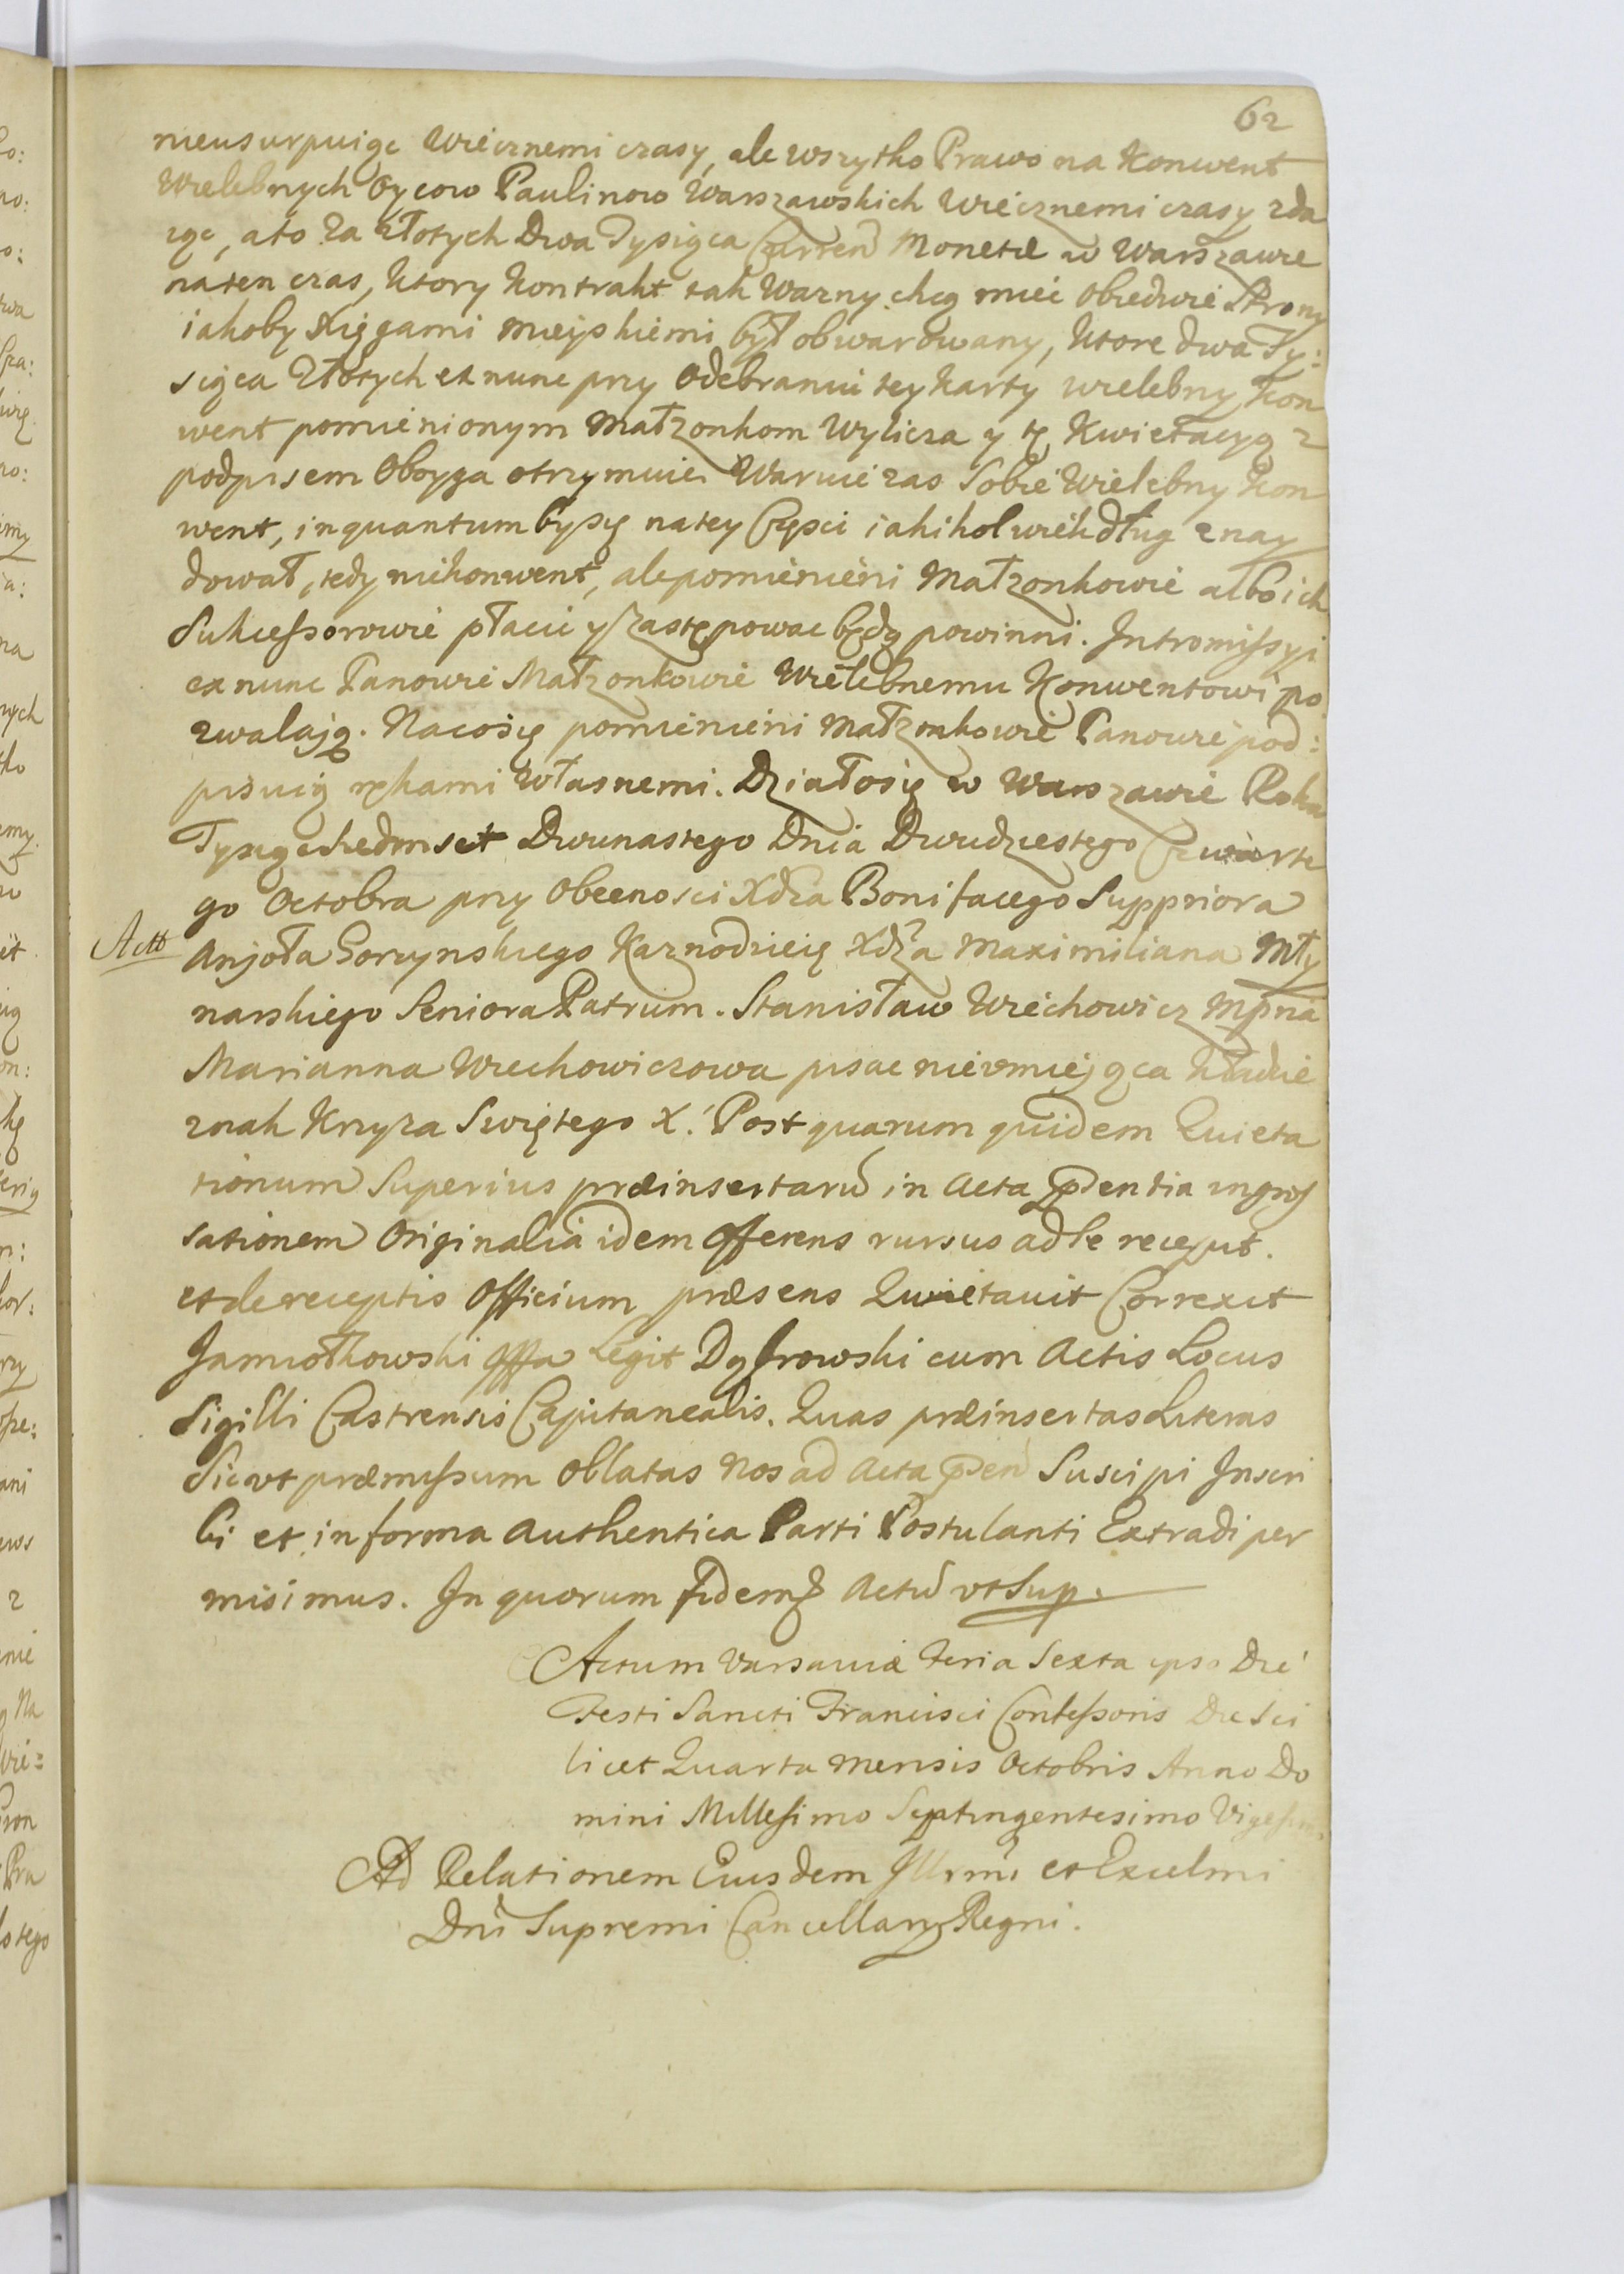 62
nieusurpuiąc wiecznemi czasy, ale wszytko Prawo na Konwent
Wielebnych Oycow Paulinow Warszawskich wiecznemi czasy zda
iąc, ato za złotych Dwa Tysiąca Curren Monetæ w Warszawie
naten czas, ktory kontrakt tak Wazny chcą mieć obiedwie Strony
iakoby Xięgami mieyskiemi był obwarowany, ktore dwa Ty:
siąca złotych ex nunc przy odebraniu tey karty wielebny Kon
went pomienionym małzonkom wylicza y tę Kwietacyą z
podpisem oboyga otrzymuie. Waruie zas sobie wielebny Kon
went, inquantum bysię natey Częsci iakikolwiek dług znay
dował, tedy niekonwent, alepomienieni Małzonkowie albo ich
Sukcessorowie płacic y zastępowac będą powinni. Intromissyi
ex nunc Panowie Małzonkowie Wielebnemu Konwentowi po
zwalają. Nacosię pomienieni małzonkowie Panowie pod:
pisuią rękami własnemi. Działosię w Warszawie Roku
Tysiąc siedmset Dwunastego Dnia Dwudziestego Czwarte
go Octobra przy obecnosci Xdza Bonifacego Suppriora
Anjoła Gorzynskiego Kaznodzieię Xdza Maximiliana Mły
narskiego Seniora Patrum. Stanisław Wiechowicz Mpria
Marianna Wiechowiczowa pisac nieumiejąca kładzie
znak Krzyza Swiętego X. Post quarum quidem Quieta
tionum Superius præinsertarū in Acta pñtentia ingros
sationem Originalia idem Offerens rursus ad se recepit.
et de receptis Officium præsens Quietavit Correxit
Jamiołkowski Legit Dąbrowski cum Actis Locus
Sigilli Castrensis Capitanealis. Quas præinsertas Literas
Sicut præmissum oblatas Nos ad Acta pñen Suscipi Inscri
bi et in forma authentica Parti Postulanti Extradi per
misimus. In quorum fidem Actū ut Sup.
Actum Varsaviæ Feria Sexta ipso Die
Festi Sancti Francisci Confessoris Die Sci
licet Quarta mensis Octobris Anno Do
mini Millesimo Septingentesimo Vigesimo
Ad Relationem Eiusdem Illrmi et Excelmi
Dni Supremi Cancellarij Regni.